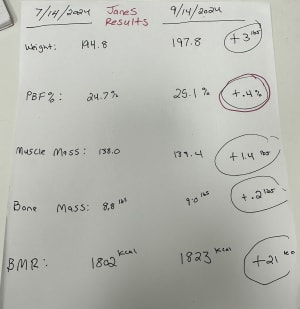 7/14/2024 Janes Results 9/14/2024
Weight: 194.8 197.8 +3 lbs
PBF%: 24.7% 25.1% +.4%
Muscle Mass: 138.0 139.4 +1.4 lbs
Bone Mass: 8.8 lbs 9.0 lbs +.2 lbs
BMR: 1802 kcal 1823 kcal +21